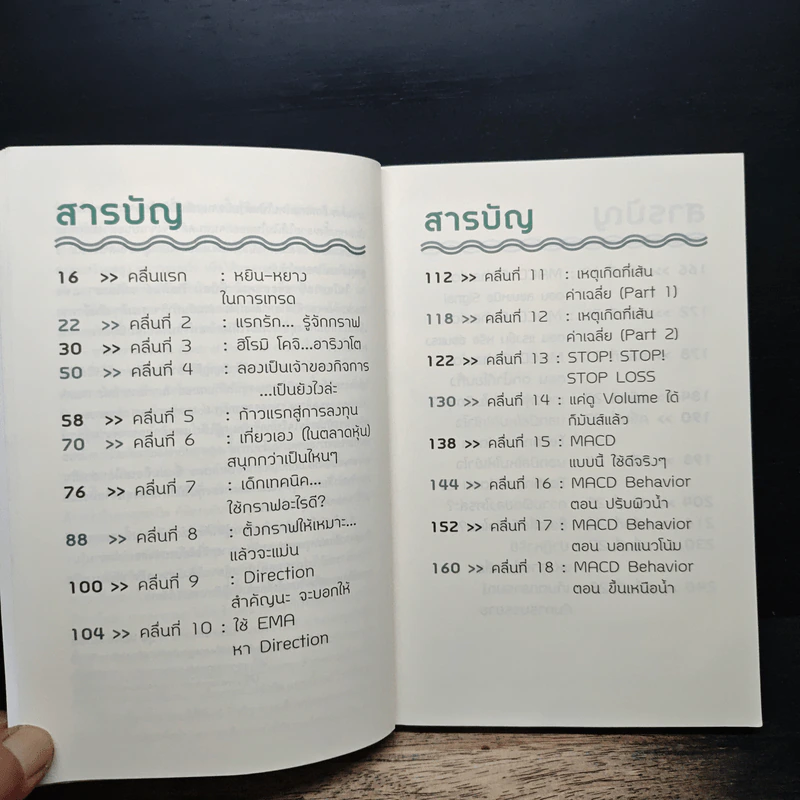 สารบัญ
16 >> คลื่นแรก : หยิน-หยาง
ในการเทรด
22 >> คลื่นที่ 2 : แรกรัก... รู้จักกราฟ
30 >> คลื่นที่ 3 : ฮิโรมิ โคจิ...อาริงาโต
50 >> คลื่นที่ 4 : ลองเป็นเจ้าของกิจการ
...เป็นยังไงล่ะ
58 >> คลื่นที่ 5 : ก้าวแรกสู่การลงทุน
70 >> คลื่นที่ 6 : เที่ยวเอง (ในตลาดหุ้น)
สนุกกว่าเป็นไหนๆ
76 >> คลื่นที่ 7 : เด็กเทคนิค...
ใช้กราฟอะไรดี?
88 >> คลื่นที่ 8 : ตั้งกราฟให้เหมาะ...
แล้วจะแม่น
100 >> คลื่นที่ 9 : Direction
สำคัญนะ จะบอกให้
104 >> คลื่นที่ 10 : ใช้ EMA
หา Direction
สารบัญ
112 >> คลื่นที่ 11 : เหตุเกิดที่เส้น
ค่าเฉลี่ย (Part 1)
118 >> คลื่นที่ 12 : เหตุเกิดที่เส้น
ค่าเฉลี่ย (Part 2)
122 >> คลื่นที่ 13 : STOP! STOP!
STOP LOSS
130 >> คลื่นที่ 14 : แค่ดู Volume ได้
ก็มันส์แล้ว
138 >> คลื่นที่ 15 : MACD
แบบนี้ ใช้ดีจริงๆ
144 >> คลื่นที่ 16 : MACD Behavior
ตอน ปรับผิวน้ำ
152 >> คลื่นที่ 17 : MACD Behavior
ตอน บอกแนวโน้ม
160 >> คลื่นที่ 18 : MACD Behavior
ตอน ขึ้นเหนือน้ำ